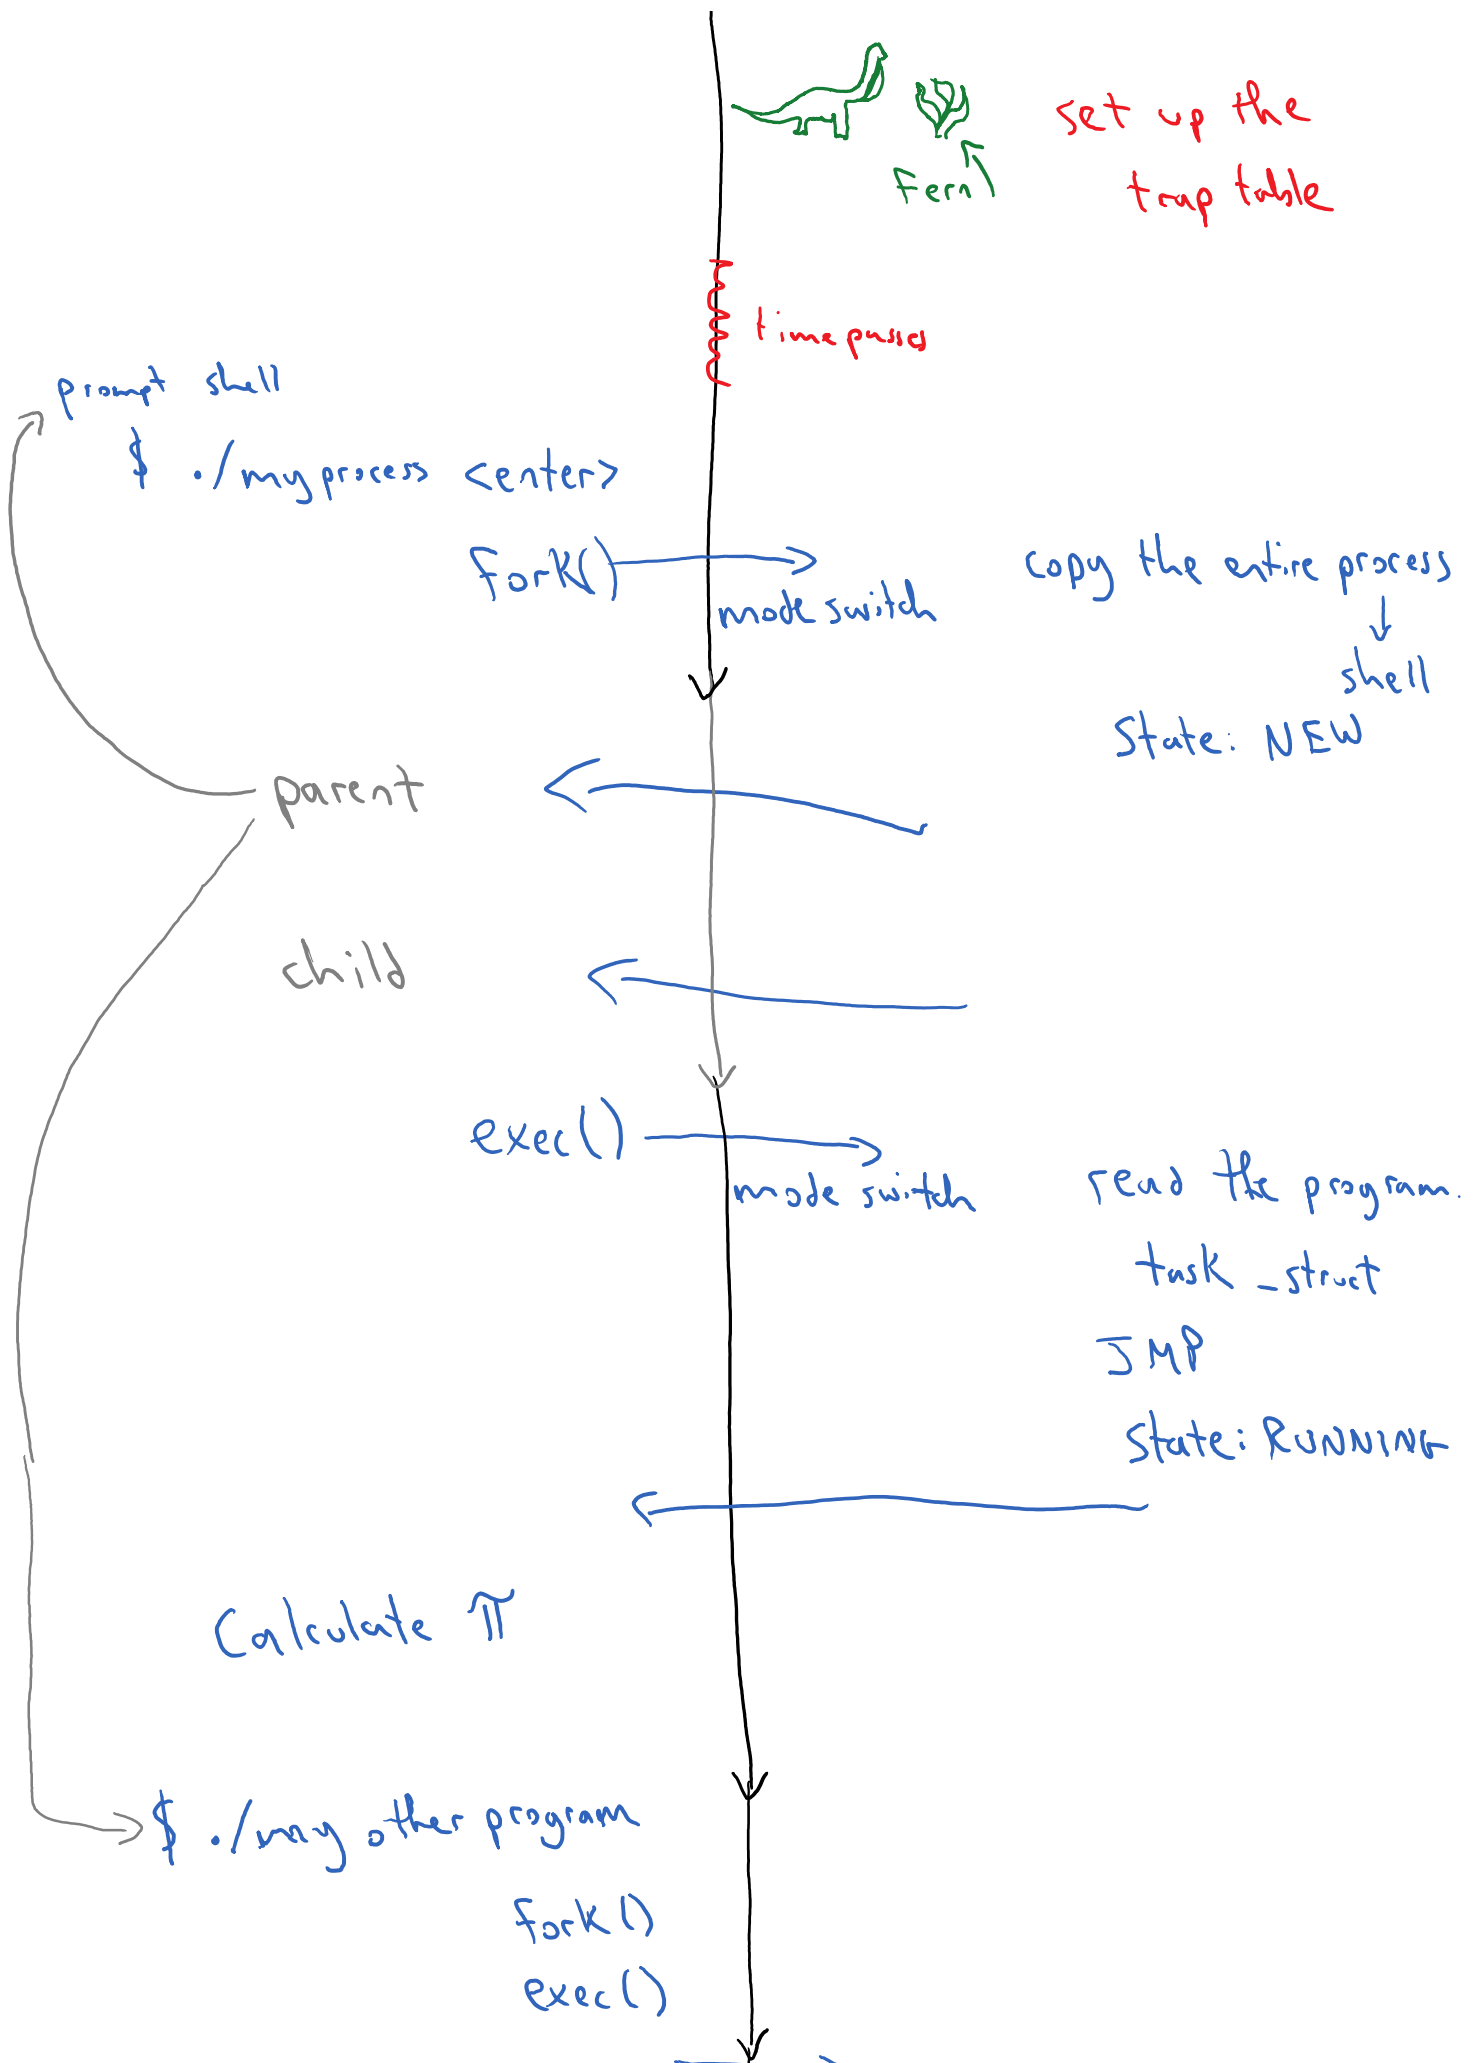 set up the
Fern
trap table
time passes
prompt shell
$ ./myprocess <enter>
fork()
copy the entire process
mode switch
shell
State: NEW
parent
child
exec()
mode switch
read the program.
task _struct
JMP
State: RUNNING
Calculate π
$ ./my other program
fork()
exec()